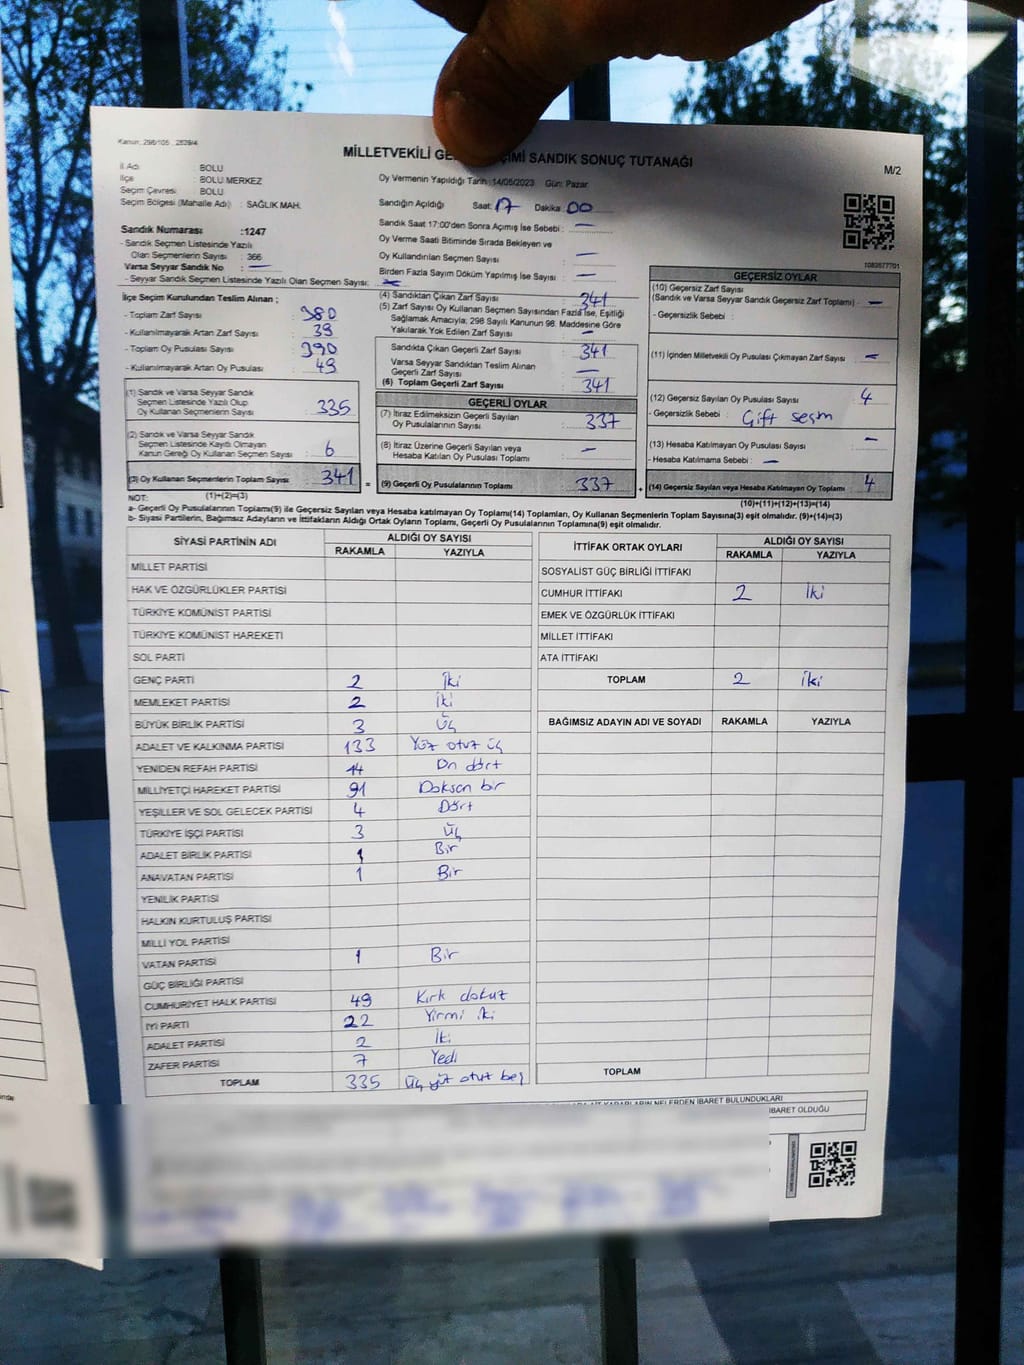 Kanun: 298/105 , 2839/4
MİLLETVEKİLİ GE ÇİMİ SANDIK SONUÇ TUTANAĞI
M/2
İl Adı : BOLU
İlçe : BOLU MERKEZ
Seçim Çevresi : BOLU
Seçim Bölgesi (Mahalle Adı) : SAĞLIK MAH.
Oy Vermenin Yapıldığı Tarih: 14/05/2023 Gün: Pazar
Sandığın Açıldığı Saat: 17 Dakika: 00
Sandık Saat 17:00'den Sonra Açılmış İse Sebebi : —
Oy Verme Saati Bitiminde Sırada Bekleyen ve
Oy Kullandırılan Seçmen Sayısı : —
Birden Fazla Sayım Döküm Yapılmış İse Sayısı : —
Sandık Numarası :1247
- Sandık Seçmen Listesinde Yazılı
Olan Seçmenlerin Sayısı : 366
Varsa Seyyar Sandık No : —
- Seyyar Sandık Seçmen Listesinde Yazılı Olan Seçmen Sayısı: —
İlçe Seçim Kurulundan Teslim Alınan ;
- Toplam Zarf Sayısı : 380
- Kullanılmayarak Artan Zarf Sayısı : 39
- Toplam Oy Pusulası Sayısı : 390
- Kullanılmayarak Artan Oy Pusulası : 49
(1) Sandık ve Varsa Seyyar Sandık
Seçmen Listesinde Yazılı Olup
Oy Kullanan Seçmenlerin Sayısı : 335
(2) Sandık ve Varsa Seyyar Sandık
Seçmen Listesinde Kayıtlı Olmayan
Kanun Gereği Oy Kullanan Seçmen Sayısı : 6
(3) Oy Kullanan Seçmenlerin Toplam Sayısı : 341 =
(1)+(2)=(3)
(4) Sandıktan Çıkan Zarf Sayısı : 341
(5) Zarf Sayısı Oy Kullanan Seçmen Sayısından Fazla İse, Eşitliği
Sağlamak Amacıyla; 298 Sayılı Kanunun 98. Maddesine Göre
Yakılarak Yok Edilen Zarf Sayısı : —
Sandıkta Çıkan Geçerli Zarf Sayısı : 341
Varsa Seyyar Sandıktan Teslim Alınan
Geçerli Zarf Sayısı : —
(6) Toplam Geçerli Zarf Sayısı : 341
GEÇERLİ OYLAR
(7) İtiraz Edilmeksizin Geçerli Sayılan
Oy Pusulalarının Sayısı : 337
(8) İtiraz Üzerine Geçerli Sayılan veya
Hesaba Katılan Oy Pusulası Toplamı : —
(9) Geçerli Oy Pusulalarının Toplamı : 337 +
1083577701
GEÇERSİZ OYLAR
(10) Geçersiz Zarf Sayısı
(Sandık ve Varsa Seyyar Sandık Geçersiz Zarf Toplamı) : —
- Geçersizlik Sebebi :
(11) İçinden Milletvekili Oy Pusulası Çıkmayan Zarf Sayısı : —
(12) Geçersiz Sayılan Oy Pusulası Sayısı : 4
- Geçersizlik Sebebi : Çift seçim
(13) Hesaba Katılmayan Oy Pusulası Sayısı : —
- Hesaba Katılmama Sebebi : —
(14) Geçersiz Sayılan veya Hesaba Katılmayan Oy Toplamı : 4
(10)+(11)+(12)+(13)=(14)
NOT:
a- Geçerli Oy Pusulalarının Toplamı(9) ile Geçersiz Sayılan veya Hesaba katılmayan Oy Toplamı(14) Toplamları, Oy Kullanan Seçmenlerin Toplam Sayısına(3) eşit olmalıdır. (9)+(14)=(3)
b- Siyasi Partilerin, Bağımsız Adayların ve İttifakların Aldığı Ortak Oyların Toplamı, Geçerli Oy Pusulalarının Toplamına(9) eşit olmalıdır.
SİYASİ PARTİNİN ADI ALDIĞI OY SAYISI
RAKAMLA YAZIYLA
MİLLET PARTİSİ
HAK VE ÖZGÜRLÜKLER PARTİSİ
TÜRKİYE KOMÜNİST PARTİSİ
TÜRKİYE KOMÜNİST HAREKETİ
SOL PARTİ
GENÇ PARTİ 2 İki
MEMLEKET PARTİSİ 2 İki
BÜYÜK BİRLİK PARTİSİ 3 Üç
ADALET VE KALKINMA PARTİSİ 133 Yüz otuz üç
YENİDEN REFAH PARTİSİ 14 On dört
MİLLİYETÇİ HAREKET PARTİSİ 91 Doksan bir
YEŞİLLER VE SOL GELECEK PARTİSİ 4 Dört
TÜRKİYE İŞÇİ PARTİSİ 3 Üç
ADALET BİRLİK PARTİSİ 1 Bir
ANAVATAN PARTİSİ 1 Bir
YENİLİK PARTİSİ
HALKIN KURTULUŞ PARTİSİ
MİLLİ YOL PARTİSİ
VATAN PARTİSİ 1 Bir
GÜÇ BİRLİĞİ PARTİSİ
CUMHURİYET HALK PARTİSİ 49 Kırk dokuz
İYİ PARTİ 22 Yirmi iki
ADALET PARTİSİ 2 İki
ZAFER PARTİSİ 7 Yedi
TOPLAM 335 Üç yüz otuz beş
İTTİFAK ORTAK OYLARI ALDIĞI OY SAYISI
RAKAMLA YAZIYLA
SOSYALİST GÜÇ BİRLİĞİ İTTİFAKI
CUMHUR İTTİFAKI 2 İki
EMEK VE ÖZGÜRLÜK İTTİFAKI
MİLLET İTTİFAKI
ATA İTTİFAKI
TOPLAM 2 İki
BAĞIMSIZ ADAYIN ADI VE SOYADI RAKAMLA YAZIYLA
TOPLAM
KARARLARIN NELERDEN İBARET BULUNDUKLARI
İBARET OLDUĞU